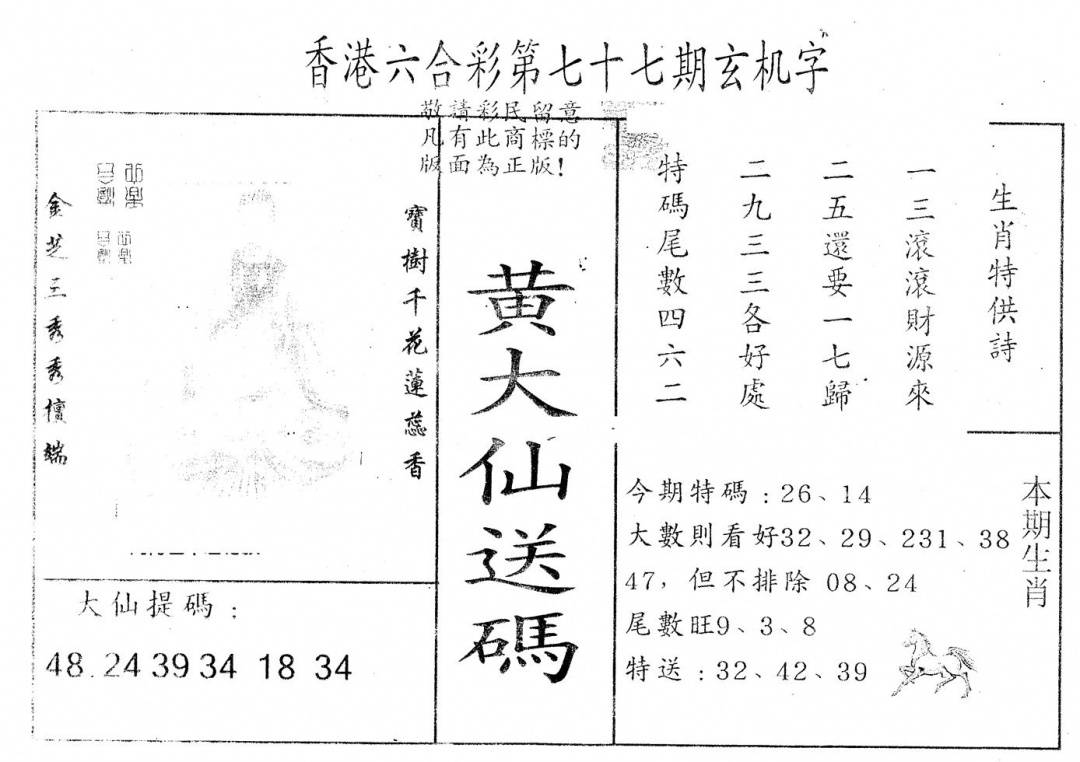 香港六合彩第七十七期玄机字
敬請彩民留意
凡有此商標的
版面為正版!
生肖特供詩
一三滾滾財源來
二五還要一七歸
二九三三各好處
特碼尾數四六二
黄大仙送碼
寶樹千花蓮蕊香
金芝三秀秀儃端
大仙提碼:
48.24 39 34 18 34
本期生肖
今期特碼:26、14
大數則看好32、29、231、38
47,但不排除 08、24
尾數旺9、3、8
特送:32、42、39